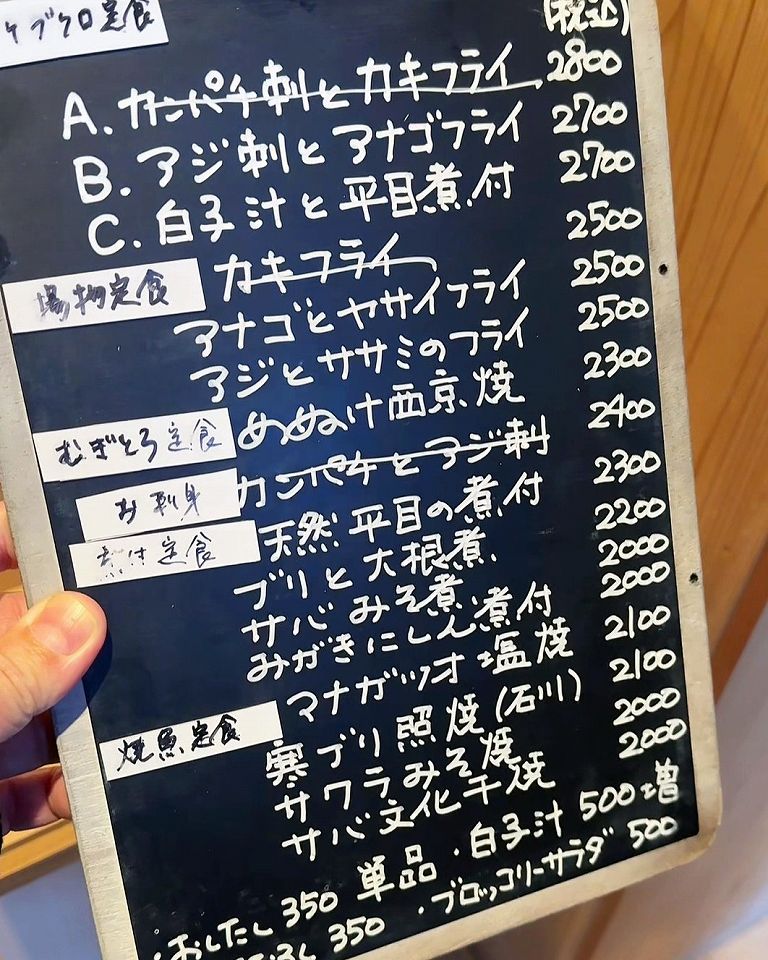 ケブケロ定食
(税込)
A. カンパチ刺とカキフライ 2800
B. アジ刺とアナゴフライ 2700
C. 白子汁と平目煮付 2700
カキフライ 2500
揚物定食
アナゴとヤサイフライ 2500
アジとササミのフライ 2500
むぎとろ定食 めぬけ西京焼 2300
お刺身 カンパチとアジ刺 2400
煮付定食 天然平目の煮付 2300
ブリと大根煮 2200
サバみそ煮 2000
みがきにしん煮付 2000
マナガツオ塩焼 2100
焼魚定食 寒ブリ照焼(石川) 2100
サワラみそ焼 2000
サバ文化干焼 2000
単品・白子汁 500増
・おしたし 350 ・ブロッコリーサラダ 500
350